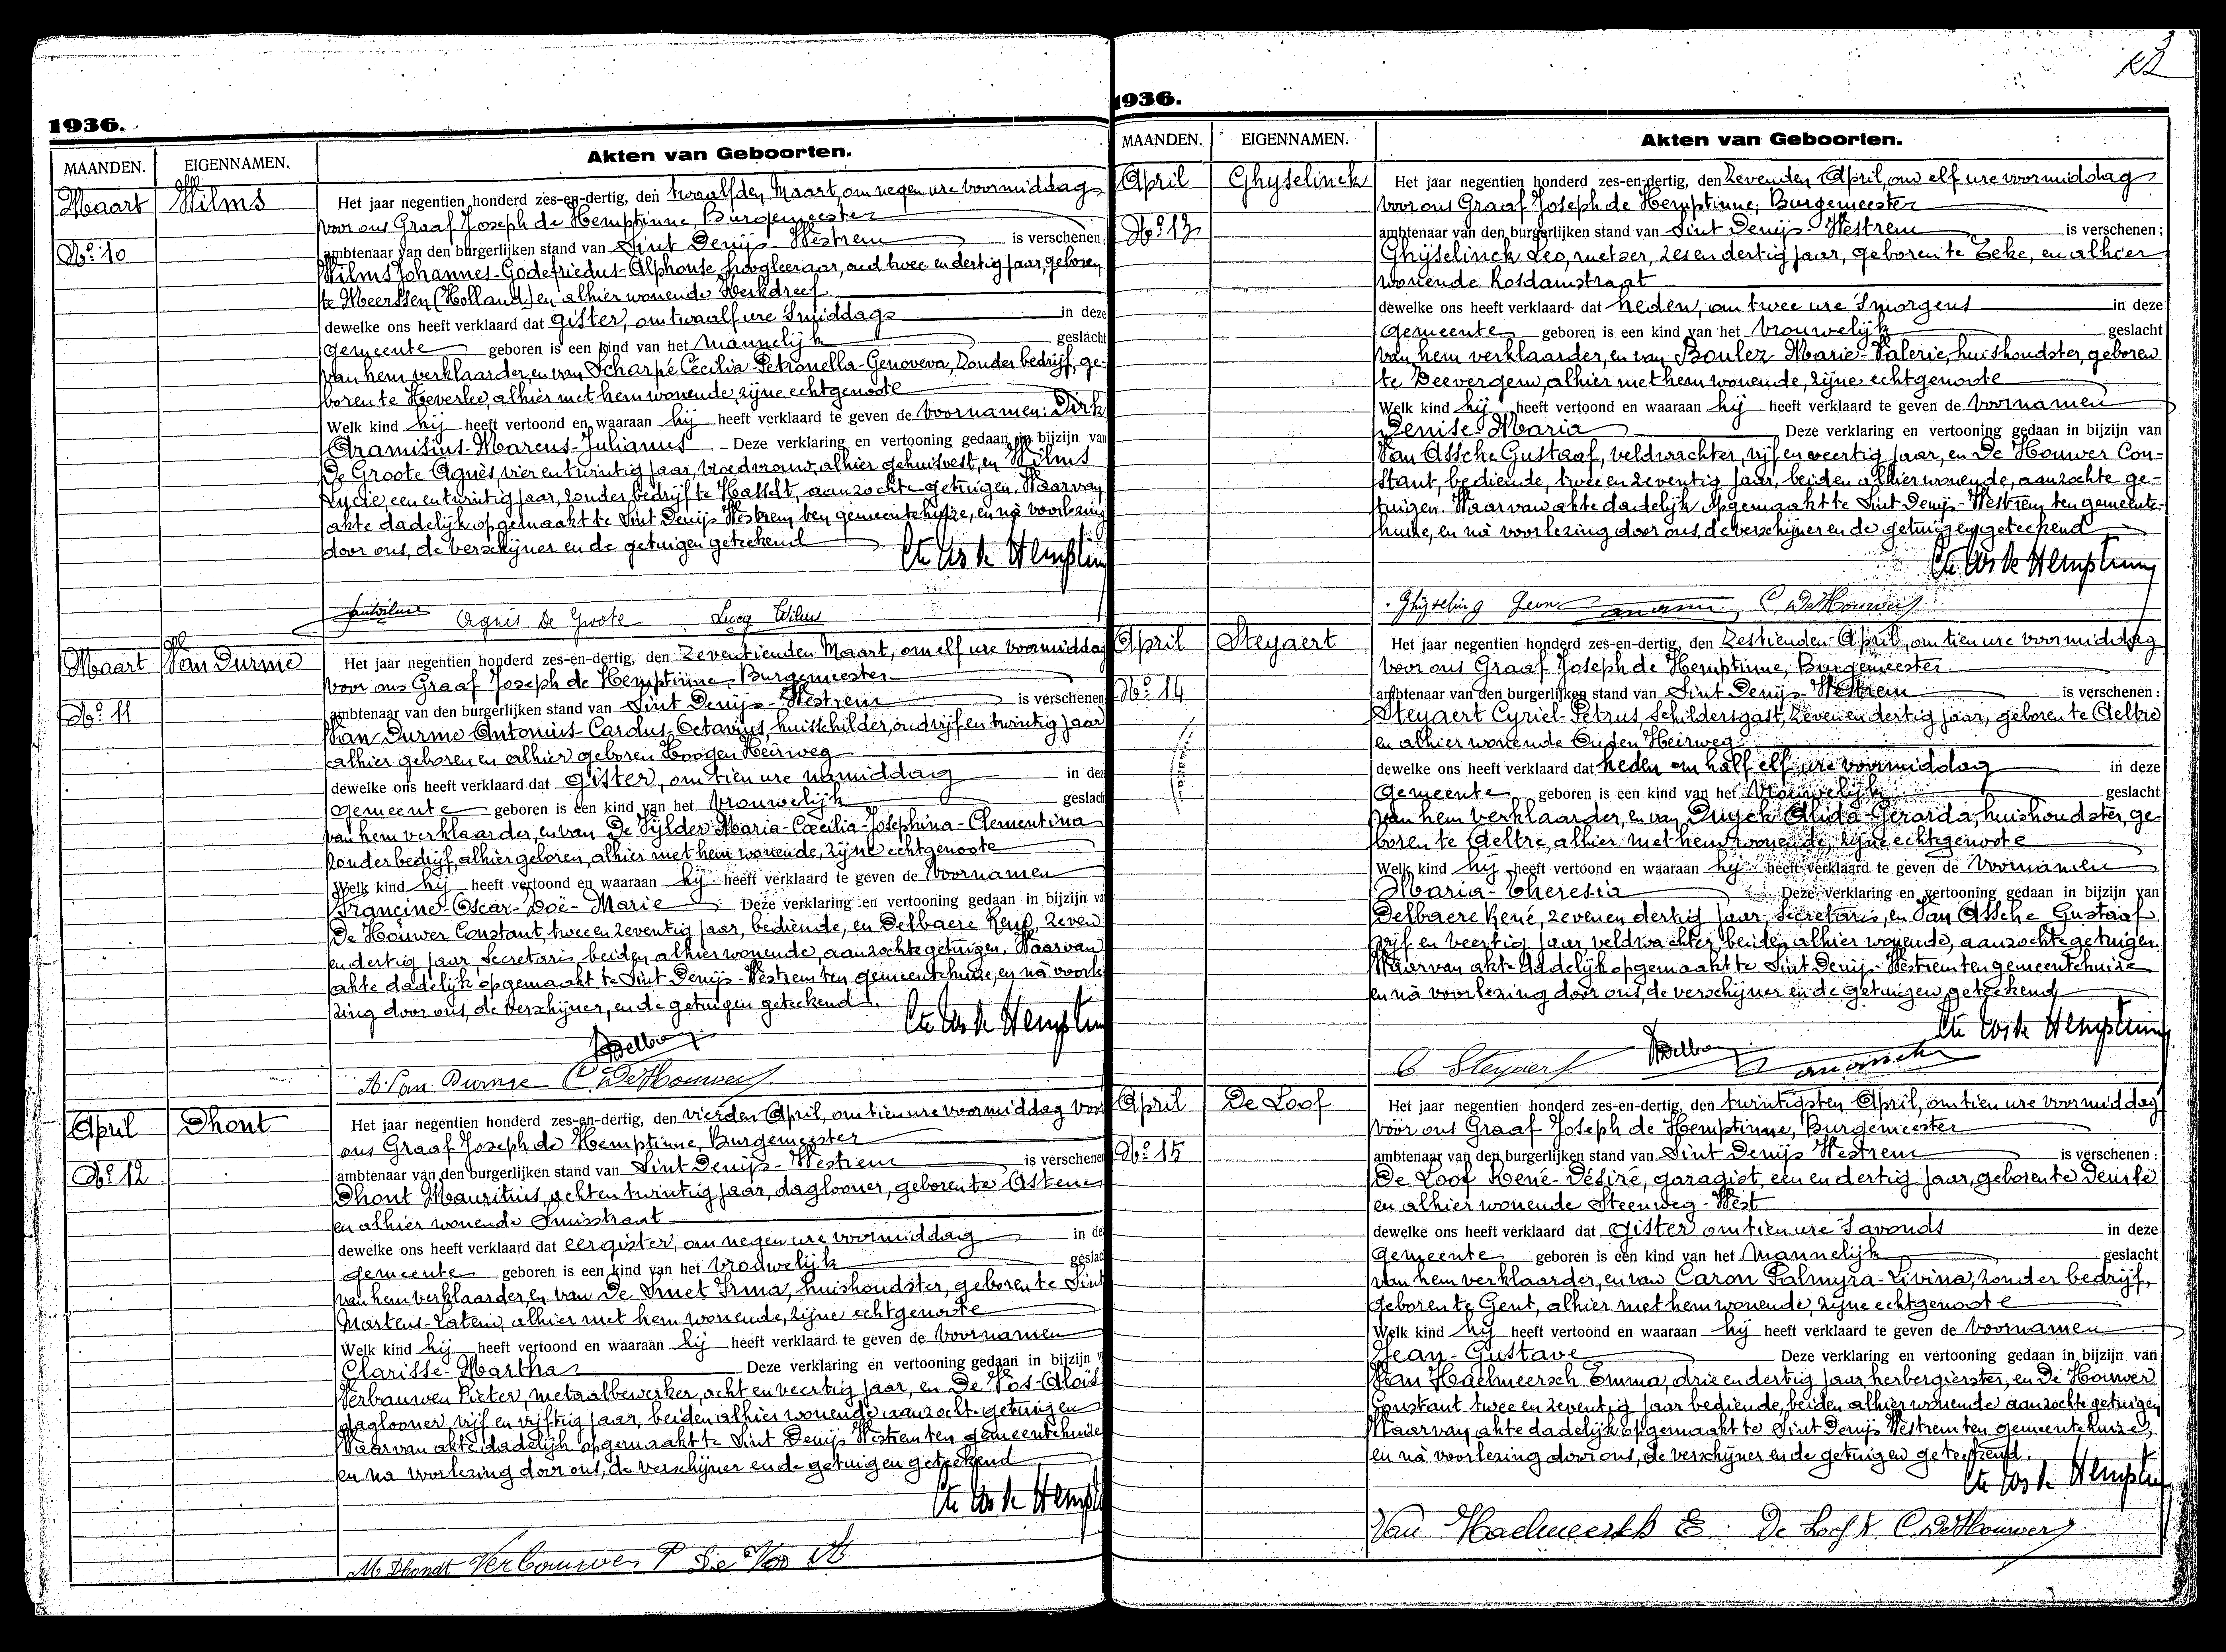 1936.
MAANDEN. EIGENNAMEN. Akten van Geboorten.
Maart Wilms Het jaar negentien honderd zes-en-dertig, den twaalfden Maart, om negen ure voormiddag
voor ons Graaf Joseph de Hemptinne, Burgemeester
No. 10 ambtenaar van den burgerlijken stand van Sint Denijs-Westrem is verschenen:
Wilms Johannes-Godefriedus-Alphonse, hoogleeraar, oud twee en dertig jaar, geboren
te Meerssen (Holland) en alhier wonende Kerkdreef
dewelke ons heeft verklaard dat gister, om twaalf ure 's middags in deze
gemeente geboren is een kind van het mannelijk geslacht
van hem verklaarder, en van Scharpé Cécilia-Petronella-Genoveva, zonder bedrijf, ge-
boren te Heverlee, alhier met hem wonende, zijne echtgenoote
Welk kind hij heeft vertoond en waaraan hij heeft verklaard te geven de voornamen: Dirk
Aramisius-Marcus-Julianus Deze verklaring en vertooning gedaan in bijzijn van
De Groote Agnès, vier en twintig jaar, vroedvrouw, alhier gehuisvest, en Wilms
Lucie, een en twintig jaar, zonder bedrijf te Hasselt, aanzochte getuigen. Waarvan
akte dadelijk opgemaakt te Sint Denijs Westrem ten gemeentehuize, en nà voorlezing
door ons, de verschijner en de getuigen geteekend
Cte Jos de Hemptin
Agnès De Groote Lucy Wilms
Maart Van Durme Het jaar negentien honderd zes-en-dertig, den zeventienden Maart, om elf ure voormiddag
voor ons Graaf Joseph de Hemptinne, Burgemeester
No. 11 ambtenaar van den burgerlijken stand van Sint Denijs-Westrem is verschenen
Van Durme Antonius-Carolus-Octavius, huisschilder, oud vijf en twintig jaar
alhier geboren en alhier geboren Hoogen Heirweg
dewelke ons heeft verklaard dat gister, om tien ure namiddag in dez
gemeente geboren is een kind van het vrouwelijk geslach
van hem verklaarder, en van De Vijlder Maria-Caecilia-Josephina-Clementina
zonder bedrijf, alhier geboren, alhier met hem wonende, zijne echtgenoote
Welk kind hij heeft vertoond en waaraan hij heeft verklaard te geven de voornamen
Francine-Oscar-Zoë-Marie Deze verklaring en vertooning gedaan in bijzijn va
De Houwer Constant, twee en zeventig jaar, bediende, en Delbaere René, zeven
en dertig jaar, secretaris, beiden alhier wonende, aanzochte getuigen. Waarvan
akte dadelijk opgemaakt te Sint Denijs-Westrem ten gemeentehuize, en nà voorle
zing door ons, de verschijner, en de getuigen geteekend.
Cte Jos de Hemptin
A. Van Durme C De Houwer
April Dhont Het jaar negentien honderd zes-en-dertig, den vierden April, om tien ure voormiddag voor
ons Graaf Joseph de Hemptinne, Burgemeester
No. 12 ambtenaar van den burgerlijken stand van Sint Denijs-Westrem is verschenen
Dhont Mauritius, acht en twintig jaar, daglooner, geboren te Astene
en alhier wonende Smisstraat
dewelke ons heeft verklaard dat eergister, om negen ure voormiddag in de
gemeente geboren is een kind van het vrouwelijk geslac
van hem verklaarder, en van De Smet Irma, huishoudster, geboren te Sint
Martens-Latem, alhier met hem wonende, zijne echtgenoote
Welk kind hij heeft vertoond en waaraan hij heeft verklaard te geven de voornamen
Clarisse-Martha Deze verklaring en vertooning gedaan in bijzijn v
Verbauwen Pieter, metaalbewerker, acht en veertig jaar, en De Vos-Aloïs
daglooner vijf en vijftig jaar, beiden alhier wonende aanzochte getuigen
Waarvan akte dadelijk opgemaakt te Sint Denijs Westrem ten gemeentehuize
en na voorlezing door ons, de verschijner en de getuigen geteekend
Cte Jos de Hempt
M. Dhondt Verbouwen P De Vos A
1936.
MAANDEN. EIGENNAMEN. Akten van Geboorten.
April Ghyselinck Het jaar negentien honderd zes-en-dertig, den zevenden April, om elf ure voormiddag
voor ons Graaf Joseph de Hemptinne, Burgemeester
No. 13 ambtenaar van den burgerlijken stand van Sint Denijs-Westrem is verschenen:
Ghijselinck Leo, metser, zes en dertig jaar, geboren te Eeke, en alhier
wonende Rosdamstraat
dewelke ons heeft verklaard dat heden, om twee ure 's morgens in deze
gemeente geboren is een kind van het vrouwelijk geslacht
van hem verklaarder, en van Boulez Marie-Valerie, huishoudster, geboren
te Zeevergem, alhier met hem wonende, zijne echtgenoote
Welk kind hij heeft vertoond en waaraan hij heeft verklaard te geven de voornamen
Denise-Maria Deze verklaring en vertooning gedaan in bijzijn van
Van Assche Gustaaf, veldwachter, vijf en veertig jaar, en De Houwer Con-
stant, bediende, twee en zeventig jaar, beiden alhier wonende, aanzochte ge-
tuigen. Waarvan akte dadelijk opgemaakt te Sint-Denijs-Westrem ten gemeente-
huize, en nà voorlezing door ons, de verschijner en de getuigen geteekend
Cte Jos de Hemptinne
Ghijselinq Leon C De Houwer
April Steyaert Het jaar negentien honderd zes-en-dertig, den zestienden April, om tien ure voormiddag
voor ons Graaf Joseph de Hemptinne, Burgemeester
No. 14 ambtenaar van den burgerlijken stand van Sint Denijs-Westrem is verschenen:
Steyaert Cyriel-Petrus, schildersgast, zeven en dertig jaar, geboren te Aeltre
en alhier wonende Ouden Heirweg
dewelke ons heeft verklaard dat heden om half elf ure voormiddag in deze
gemeente geboren is een kind van het vrouwelijk geslacht
van hem verklaarder, en van Duyck Alida-Gerarda, huishoudster, ge-
boren te Aeltre, alhier met hem wonende, zijne echtgenoote
Welk kind hij heeft vertoond en waaraan hij heeft verklaard te geven de voornamen
Maria-Theresia Deze verklaring en vertooning gedaan in bijzijn van
Delbaere René, zeven en dertig jaar, secretaris, en Van Assche Gustaaf
vijf en veertig jaar, veldwachter, beiden alhier wonende, aanzochte getuigen.
Waarvan akte dadelijk opgemaakt te Sint Denijs-Westrem ten gemeentehuize
en nà voorlezing door ons, de verschijner en de getuigen geteekend
Cte Jos de Hemptinn
C Steyaert
April De Loof Het jaar negentien honderd zes-en-dertig, den twintigsten April, om tien ure voormiddag
voor ons Graaf Joseph de Hemptinne, Burgemeester
No. 15 ambtenaar van den burgerlijken stand van Sint Denijs Westrem is verschenen:
De Loof René-Désiré, garagist, een en dertig jaar, geboren te Deinze
en alhier wonende Steenweg-West
dewelke ons heeft verklaard dat gister om tien ure 's avonds in deze
gemeente geboren is een kind van het mannelijk geslacht
van hem verklaarder, en van Caron Palmyra-Livina, zonder bedrijf,
geboren te Gent, alhier met hem wonende, zijne echtgenoote
Welk kind hij heeft vertoond en waaraan hij heeft verklaard te geven de voornamen
Jean-Gustave Deze verklaring en vertooning gedaan in bijzijn van
Van Haelmeersch Emma, drie en dertig jaar herbergierster, en De Houwer
Constant twee en zeventig jaar bediende, beiden alhier wonende aanzochte getuigen
Waarvan akte dadelijk opgemaakt te Sint Denijs Westrem ten gemeentehuize,
en nà voorlezing door ons, de verschijner en de getuigen geteekend.
Cte Jos de Hemptin
Van Haelmeersch E. De Loof R C De Houwer